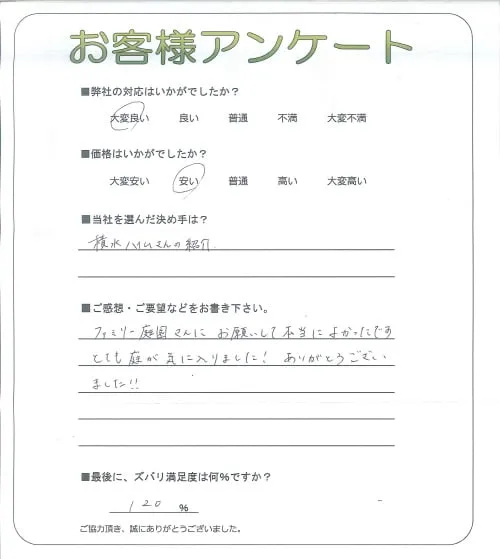 お客様アンケート
■弊社の対応はいかがでしたか？
大変良い 良い 普通 不満 大変不満
■価格はいかがでしたか？
大変安い 安い 普通 高い 大変高い
■当社を選んだ決め手は？
積水ハイムさんの紹介
■ご感想・ご要望などをお書き下さい。
ファミリー庭園さんに お願いして本当によかったです
とても庭が気に入りました！ ありがとうござい
ました!!
■最後に、ズバリ満足度は何％ですか？
120 %
ご協力頂き、誠にありがとうございました。